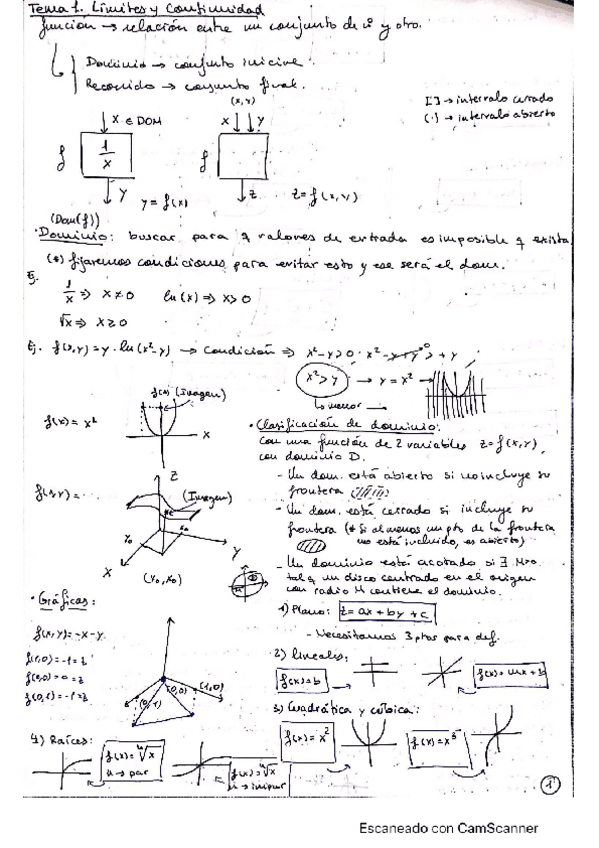 Tema 1. Límites y Continuidad
función → relación entre un conjunto de nº y otro.
Dominio → conjunto inicial.
Recorrido → conjunto final.
[ ] → intervalo cerrado
( ) → intervalo abierto
(x, y)
x ∈ DOM
x y
f
1/x
f
y
y = f(x)
z
z = f(x, y)
(Dom(f))
Dominio: buscar para q valores de entrada es imposible q exista
(*) fijaremos condiciones para evitar esto y ese será el dom.
Ej.
1/x ⇒ x ≠ 0 ln(x) ⇒ x > 0
√x ⇒ x ≥ 0
Ej. f(x,y) = y · ln(x²-y) → condición ⇒ x²-y > 0 · x² -y+y > +y
x² > y → y = x² →
Lo menor
f(x) = x²
f(x) (Imagen)
x
• Clasificación de dominio:
Con una función de 2 variables z = f(x,y)
con dominio D.
- Un dom. está abierto si no incluye su
frontera
- Un dom. está cerrado si incluye su
frontera (* Si al menos un pto de la frontera
no está incluido, es abierto)
- Un dominio está acotado si ∃ M>0
tal q un disco centrado en el origen
con radio M contiene el dominio.
f(x,y) = ...
z
(Imagen)
y
x
• Gráficas:
1) Plano: z = ax + by + c
- Necesitamos 3 ptos para def.
f(x,y) = -x-y.
f(1,0) = -1 = z
f(0,0) = 0 = z
f(0,1) = -1 = z
(0,0) (1,0)
(0,1)
2) lineales:
f(x) = b
f(x) = mx + b
3) Cuadrática y cúbica:
f(x) = x²
f(x) = x³
4) Raíces:
f(x) = ⁿ√x
n → par
f(x) = ⁿ√x
n → impar
1
Escaneado con CamScanner